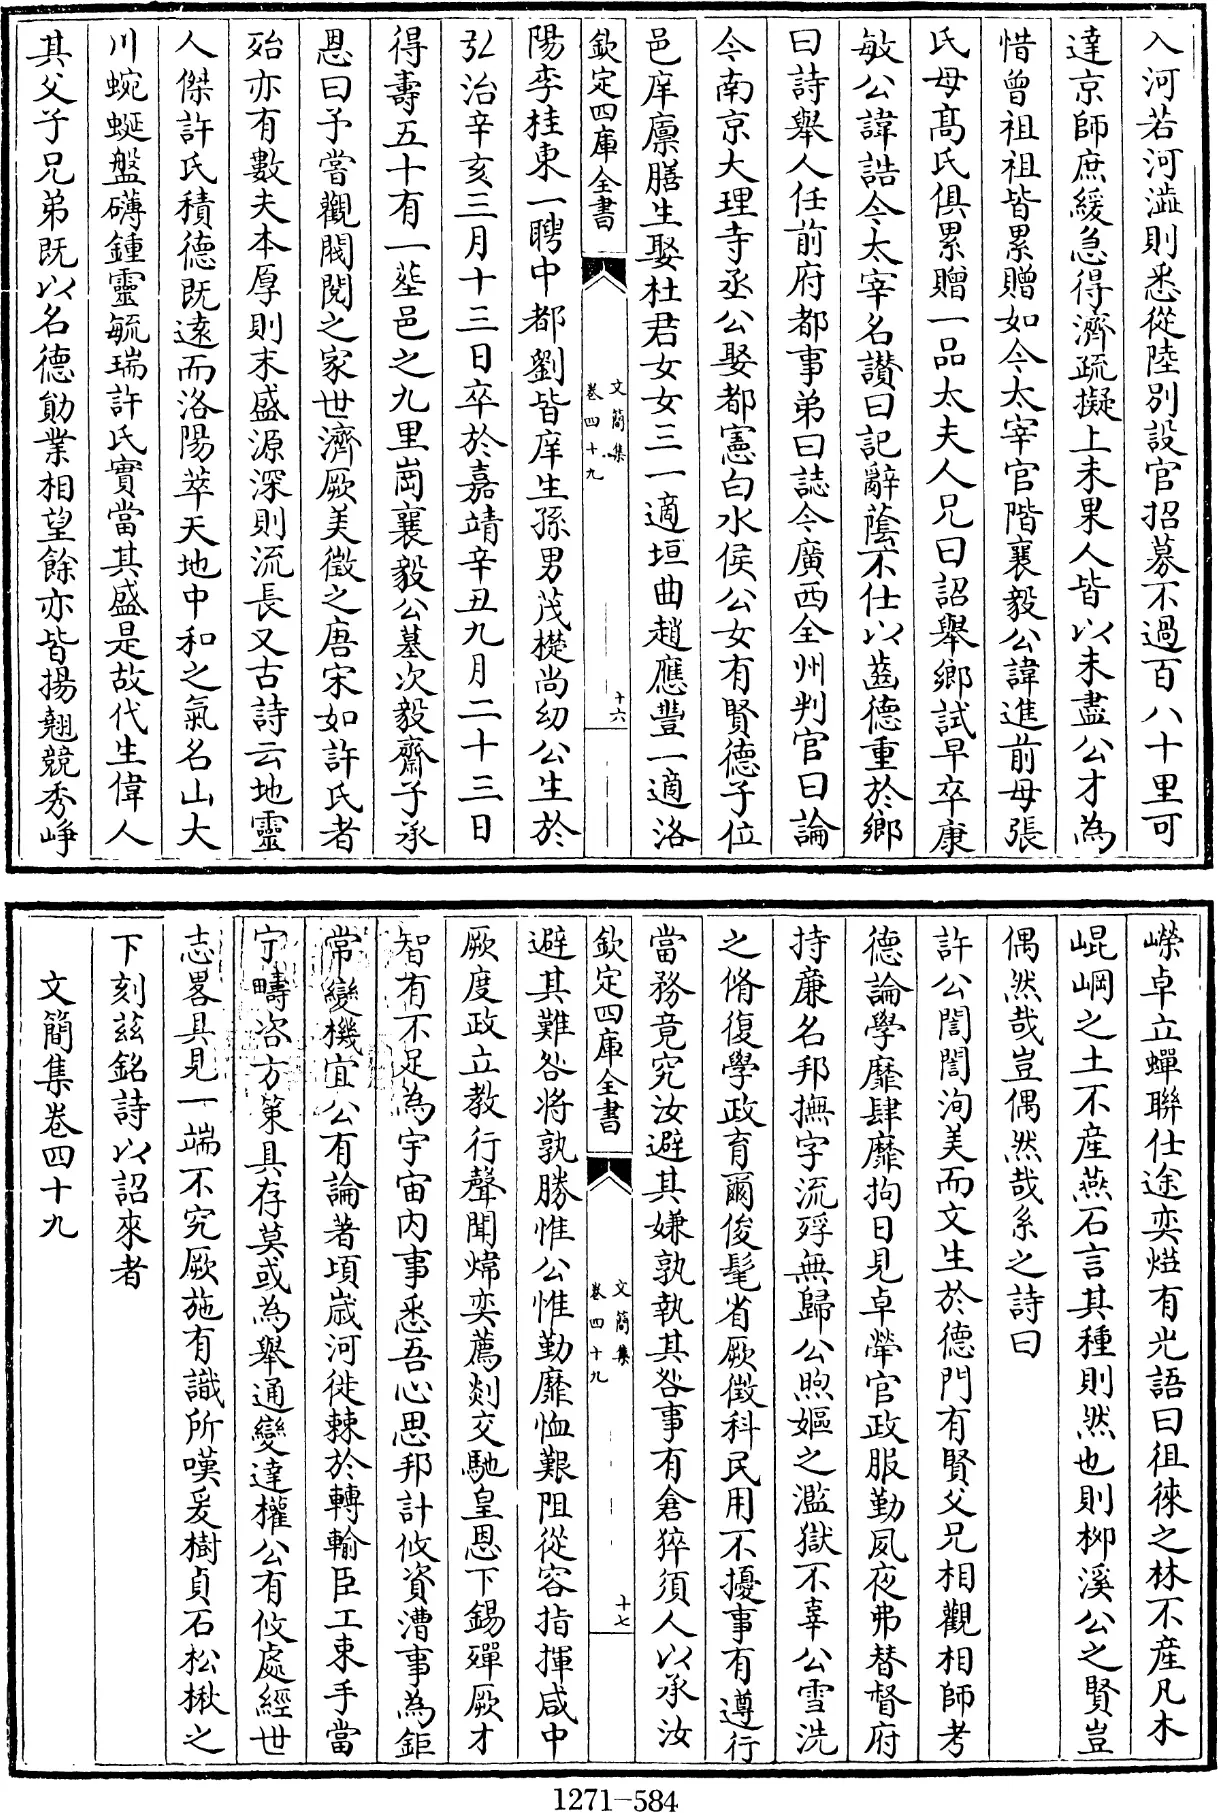 入河若河澁則悉從陸別設官招募不過百八十里可
達京師庶緩急得濟疏擬上未果人皆以未盡公才為
惜曾祖祖皆累贈如今太宰官階襄毅公諱進前母張
氏母髙氏俱累贈一品太夫人兄曰詔舉鄉試早卒康
敏公諱誥今太宰名讚曰記辭䕃不仕以齒德重於鄉
曰詩舉人任前府都事弟曰誌今廣西全州判官曰論
今南京大理寺丞公娶都憲白水侯公女有賢德子位
邑庠廪膳生娶杜君女女三一適垣曲趙應豐一適洛
欽定四庫全書
文簡集
卷四十九
十六
陽李桂東一聘中都劉皆庠生孫男茂㯤尚幼公生於
弘治辛亥三月十三日卒於嘉靖辛丑九月二十三日
得壽五十有一塟邑之九里崗襄毅公墓次毅齋子承
恩曰予嘗觀閥閱之家世濟厥美徵之唐宋如許氏者
殆亦有數夫本厚則末盛源深則流長又古詩云地靈
人傑許氏積德既逺而洛陽萃天地中和之氣名山大
川蜿蜒盤礴鍾靈毓瑞許氏實當其盛是故代生偉人
其父子兄弟既以名德勛業相望餘亦皆揚翹競秀崢
嶸卓立蟬聯仕途奕㷫有光語曰徂徠之林不產凡木
崐岡之土不產燕石言其種則然也則栁溪公之賢豈
偶然哉豈偶然哉系之詩曰
許公誾誾洵美而文生於德門有賢父兄相觀相師考
德論學靡肆靡拘日見卓犖官政服勤夙夜弗替督府
持廉名邦撫字流殍無歸公煦嫗之濫獄不辜公雪洗
之脩復學政育爾俊髦省厥徵科民用不擾事有遵行
當務竟究汝避其嫌孰執其咎事有倉猝須人以承汝
欽定四庫全書
文簡集
卷四十九
十七
避其難咎將孰勝惟公惟勤靡恤艱阻從容指揮咸中
厥度政立教行聲聞煒奕薦剡交馳皇恩下錫殫厥才
智有不足為宇宙内事悉吾心思邦計攸資漕事為鉅
常變機宜公有論著頃嵗河徙棘於轉輸臣工束手當
宁疇咨方策具存莫或為舉通變達權公有攸處經世
志畧具見一端不究厥施有識所嘆爰樹貞石松楸之
下刻兹銘詩以詔來者
文簡集卷四十九
1271-584